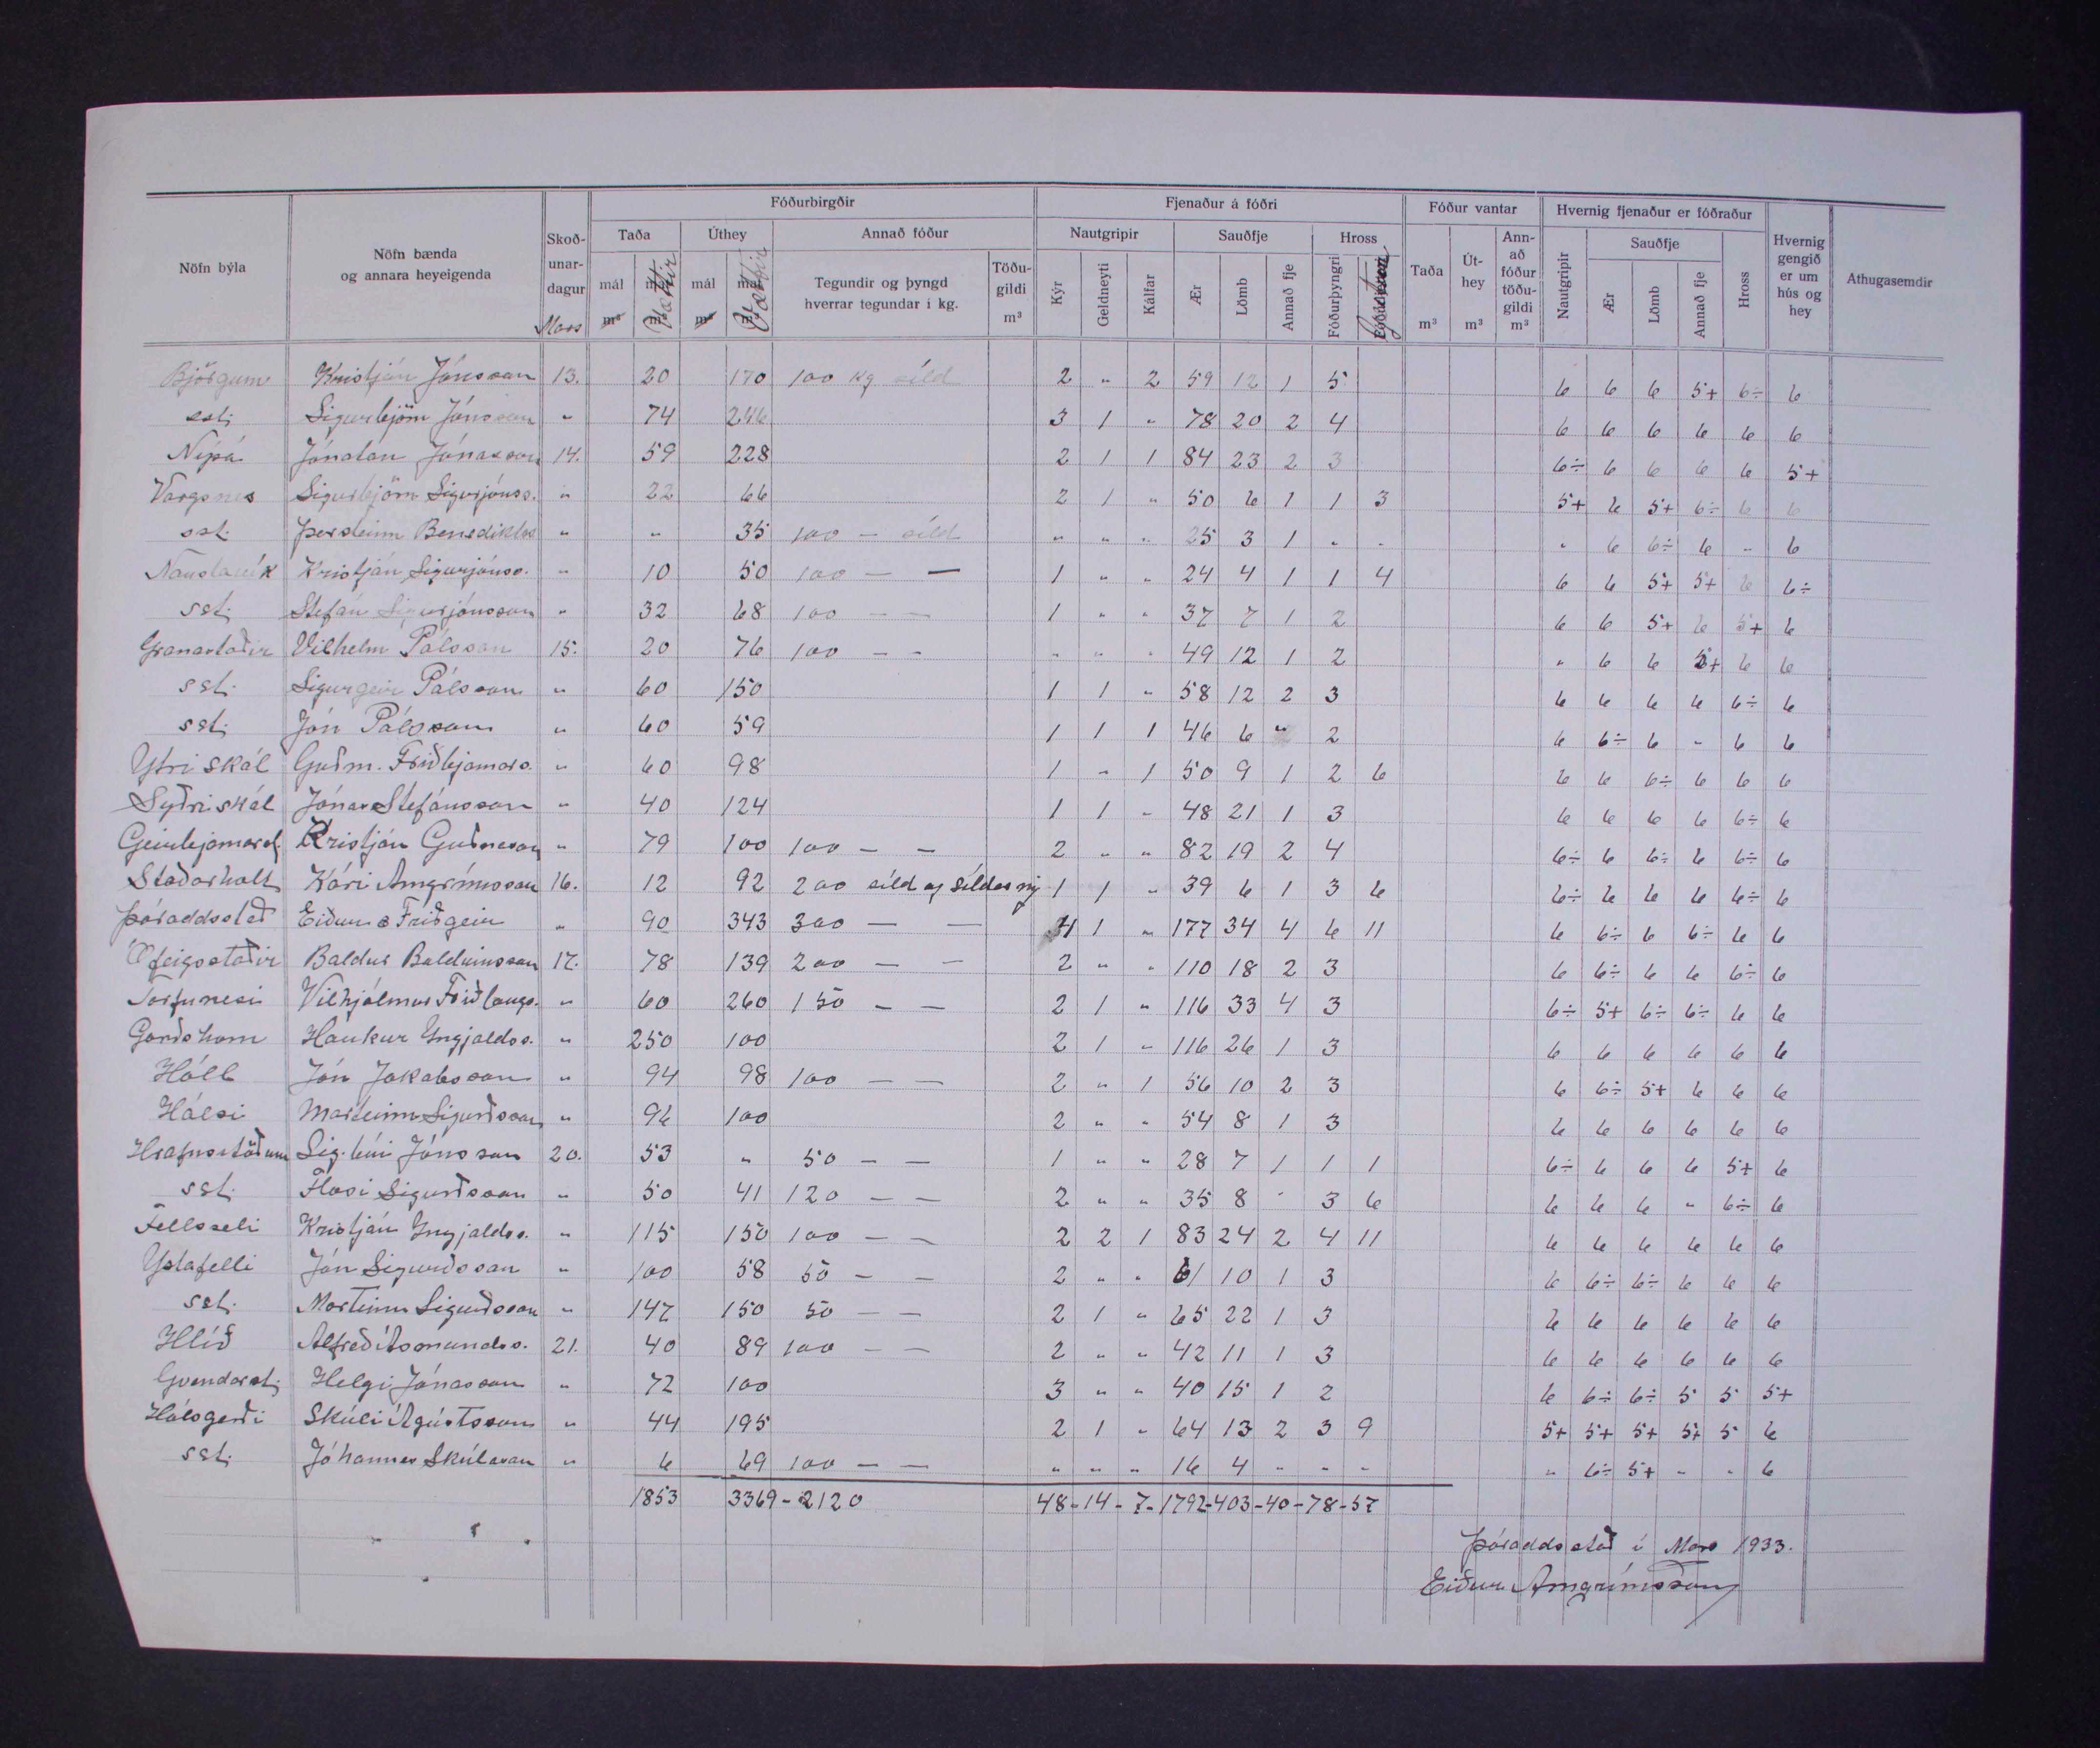 Fóðurbirgðir Fjenaður á fóðri Fóður vantar Hvernig fjenaður er fóðraður
Nöfn býla
Nöfn bænda og annara heyeigenda
Skoðunardagur Mars
Taða mál m³ Vættir
Úthey mál m³ Vættir
Annað fóður Tegundir og þyngd hverrar tegundar í kg. Töðugildi m³
Nautgripir Kýr Geldneyti Kálfar
Sauðfje Ær Lömb Annað fje
Hross Fóðurþyngri
Taða m³ Úthey m³ Annað fóður töðugildi m³
Nautgripir Sauðfje Ær Lömb Annað fje Hross
Hvernig gengið er um hús og hey
Athugasemdir
Björgum Kristján Jónsson 13. 20 170 100 kg síld 2 " 2 59 12 1 5 6 6 6 5+ 6÷ 6
sst. Sigurbjörn Jónsson " 74 246 3 1 " 78 20 2 4 6 6 6 6 6 6
Nípá Jónatan Jónasson 14. 59 228 2 1 1 84 23 2 3 6÷ 6 6 6 6 5+
Vargsnes Sigurbjörn Sigurjónss. " 22 66 2 1 " 50 6 1 1 3 5+ 6 5+ 6÷ 6 6
sst. Þorsteinn Benediktss " " 35 100 — síld " " " 25 3 1 " " " 6 6÷ 6 " 6
Naustavík Kristján Sigurjónss. " 10 50 100 — — 1 " " 24 4 1 1 4 6 6 5+ 5+ 6 6÷
sst. Stefán Sigurjónsson " 32 68 100 — — 1 " " 37 7 1 2 6 6 5+ 6 5+ 6
Granastaðir Vilhelm Pálsson 15. 20 76 100 — — " " " 49 12 1 2 " 6 6 5+ 6 6
sst. Sigurgeir Pálsson " 60 150 1 1 " 58 12 2 3 6 6 6 6 6÷ 6
sst. Jón Pálsson " 60 59 1 1 1 46 6 " 2 6 6÷ 6 " 6 6
Ytri skál Guðm. Friðbjarnars. " 60 98 1 " 1 50 9 1 2 6 6 6 6÷ 6 6 6
Syðri skál Jónas Stefánsson " 40 124 1 1 " 48 21 1 3 6 6 6 6 6÷ 6
Geirbjarnarst. Kristján Guðnason " 79 100 100 — — 2 " " 82 19 2 4 6÷ 6 6÷ 6 6÷ 6
Staðarholt Kári Arngrímsson 16. 12 92 200 síld og síldarmj 1 1 " 39 6 1 3 6 6÷ 6 6 6 6÷ 6
Þóroddsstað Eiður & Friðgeir " 90 343 300 — — 4 1 " 177 34 4 6 11 6 6÷ 6 6÷ 6 6
Ófeigsstaðir Baldur Baldvinsson 17. 78 139 200 — — 2 " " 110 18 2 3 6 6÷ 6 6 6÷ 6
Torfunesi Vilhjálmur Friðlaugs. " 60 260 150 — — 2 1 " 116 33 4 3 6÷ 5+ 6÷ 6÷ 6 6
Garðshorn Haukur Yngjaldss. " 250 100 2 1 " 116 26 1 3 6 6 6 6 6 6
Hóll Jón Jakobsson " 94 98 100 — — 2 " 1 56 10 2 3 6 6÷ 5+ 6 6 6
Hálsi Marteinn Sigurðsson " 96 100 2 " " 54 8 1 3 6 6 6 6 6 6
Hrafnsstöðum Sig. búi Jónsson 20. 53 " 50 — — 1 " " 28 7 1 1 1 6÷ 6 6 6 5+ 6
sst. Flosi Sigurðsson " 50 41 120 — — 2 " " 35 8 " 3 6 6 6 6 " 6÷ 6
Fellsseli Kristján Yngjaldss. " 115 150 100 — — 2 2 1 83 24 2 4 11 6 6 6 6 6 6
Ystafelli Jón Sigurðsson " 100 58 50 — — 2 " " 61 10 1 3 6 6÷ 6÷ 6 6 6
sst. Marteinn Sigurðsson " 147 150 50 — — 2 1 " 65 22 1 3 6 6 6 6 6 6
Hlíð Alfreð Ásmundss. 21. 40 89 100 — — 2 " " 42 11 1 3 6 6 6 6 6 6
Gvendarst. Helgi Jónasson " 72 100 3 " " 40 15 1 2 6 6÷ 6÷ 5 5 5+
Hálsgerði Skúli Ágústsson " 44 195 2 1 " 64 13 2 3 9 5+ 5+ 5+ 5+ 5 6
sst. Jóhannes Skúlason " 6 69 100 — — " " " 16 4 " " " " 6÷ 5+ " " 6
1853 3369 - 2120 48 - 14 - 7 - 1792 - 403 - 40 - 78 - 57
Þóroddsstað í Mars 1933.
Eiður Arngrímsson